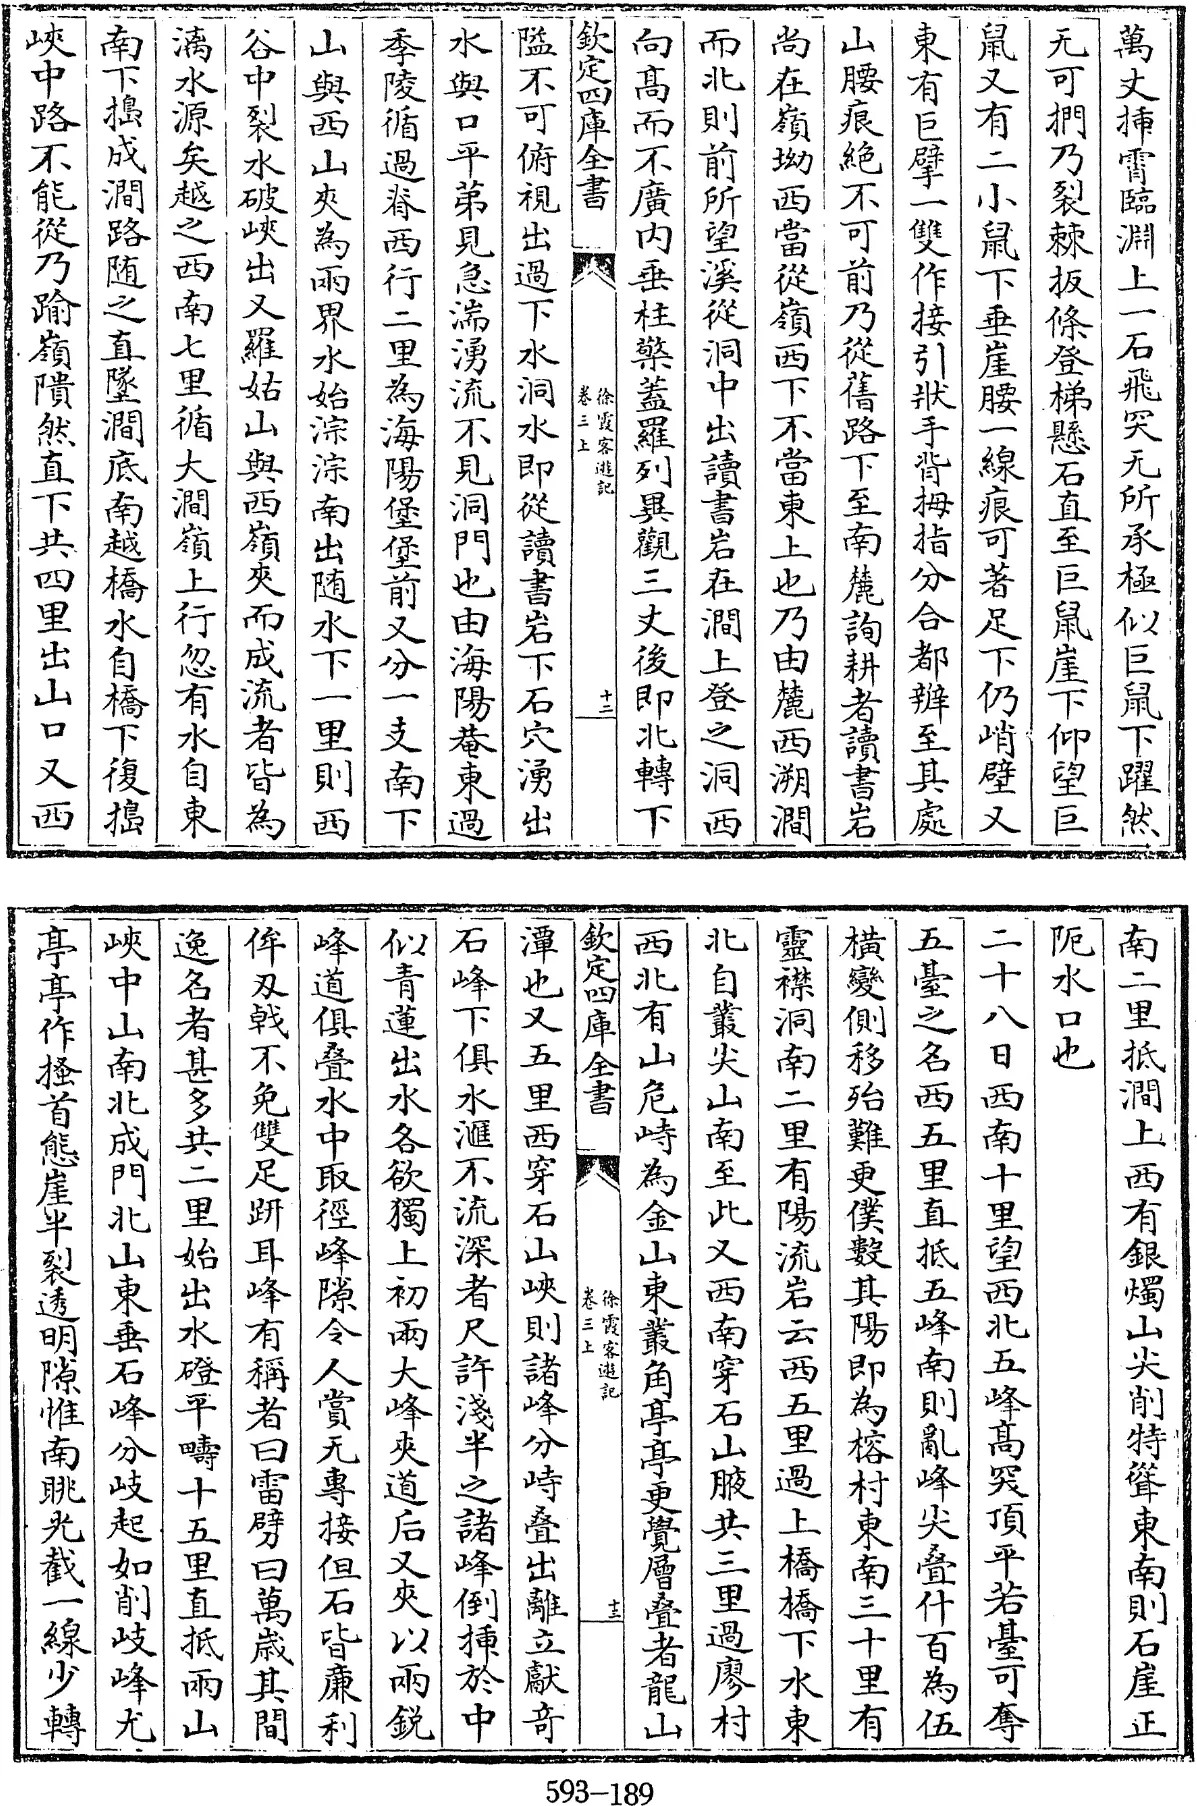 萬丈揷霄臨淵上一石飛突无所承極似巨鼠下躍然
无可捫乃裂棘扳條登梯懸石直至巨鼠崖下仰望巨
鼠又有二小鼠下垂崖腰一線痕可著足下仍峭壁又
東有巨擘一雙作接引狀手背拇指分合都辦至其處
山腰痕絶不可前乃從舊路下至南麓詢耕者讀書岩
尚在嶺坳西當從嶺西下不當東上也乃由麓西溯澗
而北則前所望溪從洞中出讀書岩在澗上登之洞西
向髙而不廣内垂柱蘂蓋羅列異觀三丈後即北轉下
欽定四庫全書
徐霞客遊記
卷三上
十二
隘不可俯視出過下水洞水即從讀書岩下石穴湧出
水與口平苐見急湍湧流不見洞門也由海陽菴東過
季陵循過脊西行二里為海陽堡堡前又分一支南下
山與西山夾為兩界水始淙淙南出随水下一里則西
谷中裂水破峽出又羅姑山與西嶺夾而成流者皆為
漓水源矣越之西南七里循大澗嶺上行忽有水自東
南下搗成澗路随之直墜澗底南越橋水自橋下復搗
峽中路不能從乃踰嶺隤然直下共四里出山口又西
南二里抵澗上西有銀燭山尖削特聳東南則石崖正
阨水口也
二十八日西南十里望西北五峰髙突頂平若臺可奪
五臺之名西五里直抵五峰南則亂峰尖叠什百為伍
橫變側移殆難更僕數其陽即為榕村東南三十里有
靈襟洞南二里有陽流岩云西五里過上橋橋下水東
北自叢尖山南至此又西南穿石山腋共三里過廖村
西北有山危峙為金山東叢角亭亭更覺層叠者龍山
欽定四庫全書
徐霞客遊記
卷三上
十三
潭也又五里西穿石山峽則諸峰分峙叠出離立獻竒
石峰下俱水滙不流深者尺許淺半之諸峰倒揷於中
似青蓮出水各欲獨上初兩大峰夾道后又夾以兩鋭
峰道俱叠水中取徑峰隙令人賞无專接但石皆廉利
侔刄戟不免雙足趼耳峰有稱者曰雷劈曰萬歳其間
逸名者甚多共二里始出水磴平疇十五里直抵兩山
峽中山南北成門北山東垂石峰分岐起如削岐峰尤
亭亭作搔首態崖半裂透明隙惟南眺光截一線少轉
593-189